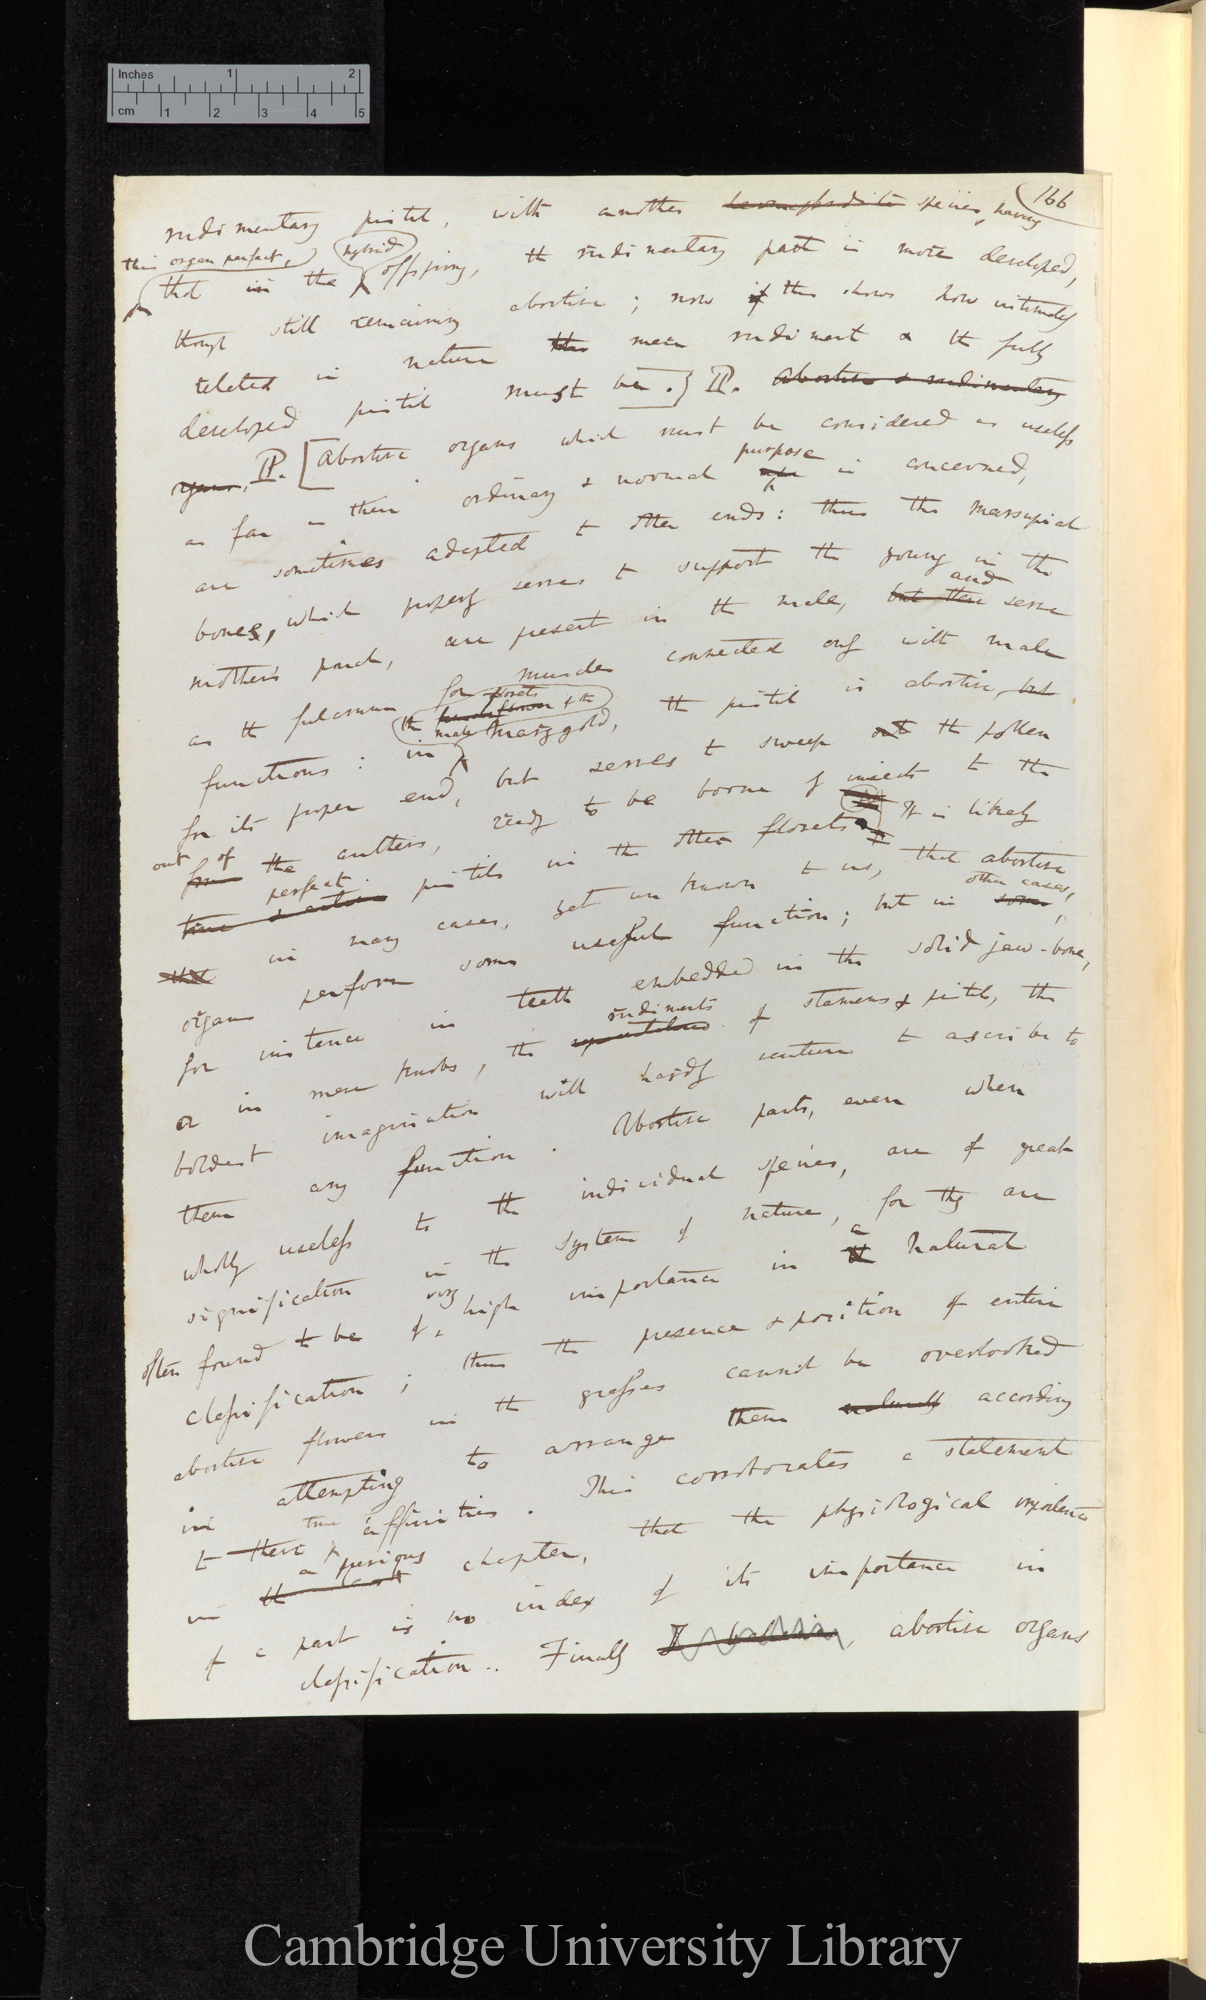 Inches 1 2
cm 1 2 3 4 5
166
rudimentary pistil, with another hermaphrodite species, having
this organ perfect, hybrid
that in the offspring, the rudimentary part is more developed,
though still remaining abortive; now if this shows how intimately
related in nature this mere rudiment & the fully
developed pistil must be. P. Abortive & rudimentary
organs, P. [Abortive organs which must be considered as useless
purpose
as far as their ordinary & normal is concerned,
are sometimes adapted to other ends: thus the marsupial
bones, which properly serves to support the young in the
and
mother's pouch, are present in the male, but there serve
as the fulcrum for muscles connected only with male
florets & the
functions: in the male marygold, the pistil is abortive, but
for its proper end, but serves to sweep out the pollen
out of
from the anthers, ready to be borne by insects to the
perfect
pistils in the other florets. It is likely
in many cases, yet unknown to us, that abortive
other cases,
organs perform some useful function; but in some,
for instance in teeth embedded in the solid jaw-bone,
rudiments
or in mere knobs, the of stamens & pistils, the
boldest imagination will hardly venture to ascribe to
them any function. Abortive parts, even when
wholly useless to the individual species, are of great
signification in the system of nature, for they are
very a
often found to be of high importance in natural
classification; thus the presence & position of entire
abortive flowers in the grasses cannot be overlooked
in attempting to arrange them naturally according
true
to their affinities. This corroborates a statement
a previous
in the last chapter, that the physiological importance
of a part is no index of its importance in
classification.. Finally, abortive organs
Cambridge University Library